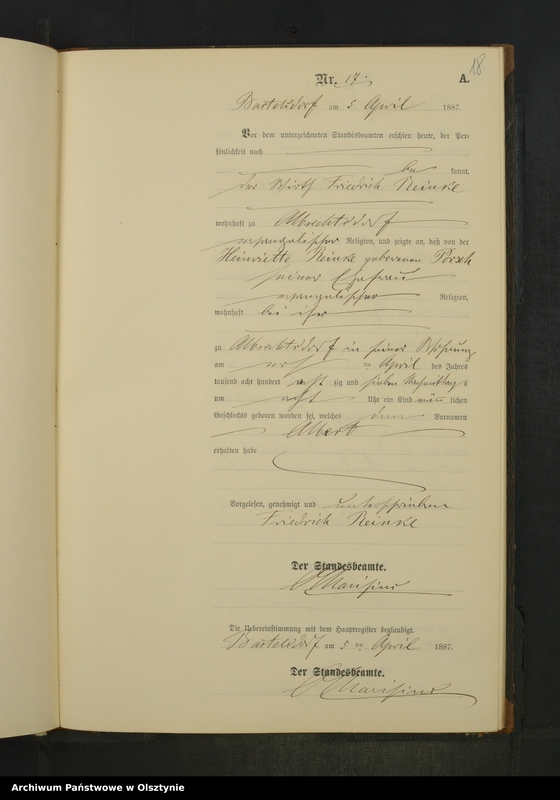 18
Nr. 17. A.
Bartelsdorf am 5 April 1887.
Vor dem unterzeichneten Standesbeamten erschien heute, der Per-
sönlichkeit nach
be kannt,
der Wirth Friedrich Reinke
wohnhaft zu Albrechtsdorf
evangelischer Religion, und zeigte an, daß von der
Henriette Reinke geborenen
seiner Ehefrau
evangelischer Religion,
wohnhaft bei ihm
zu Albrechtsdorf in seiner Wohnung
am April des Jahres
tausend acht hundert acht zig und sieben Nachmittags
um acht Uhr ein Kind männ lichen
Geschlechts geboren worden sei, welches den Vornamen
Albert
erhalten habe
Vorgelesen, genehmigt und unterschrieben
Friedrich Reinke
Der Standesbeamte.
Die Uebereinstimmung mit dem Hauptregister beglaubigt.
Bartelsdorf am 5 ten April 1887.
Der Standesbeamte.
Archiwum Państwowe w Olsztynie